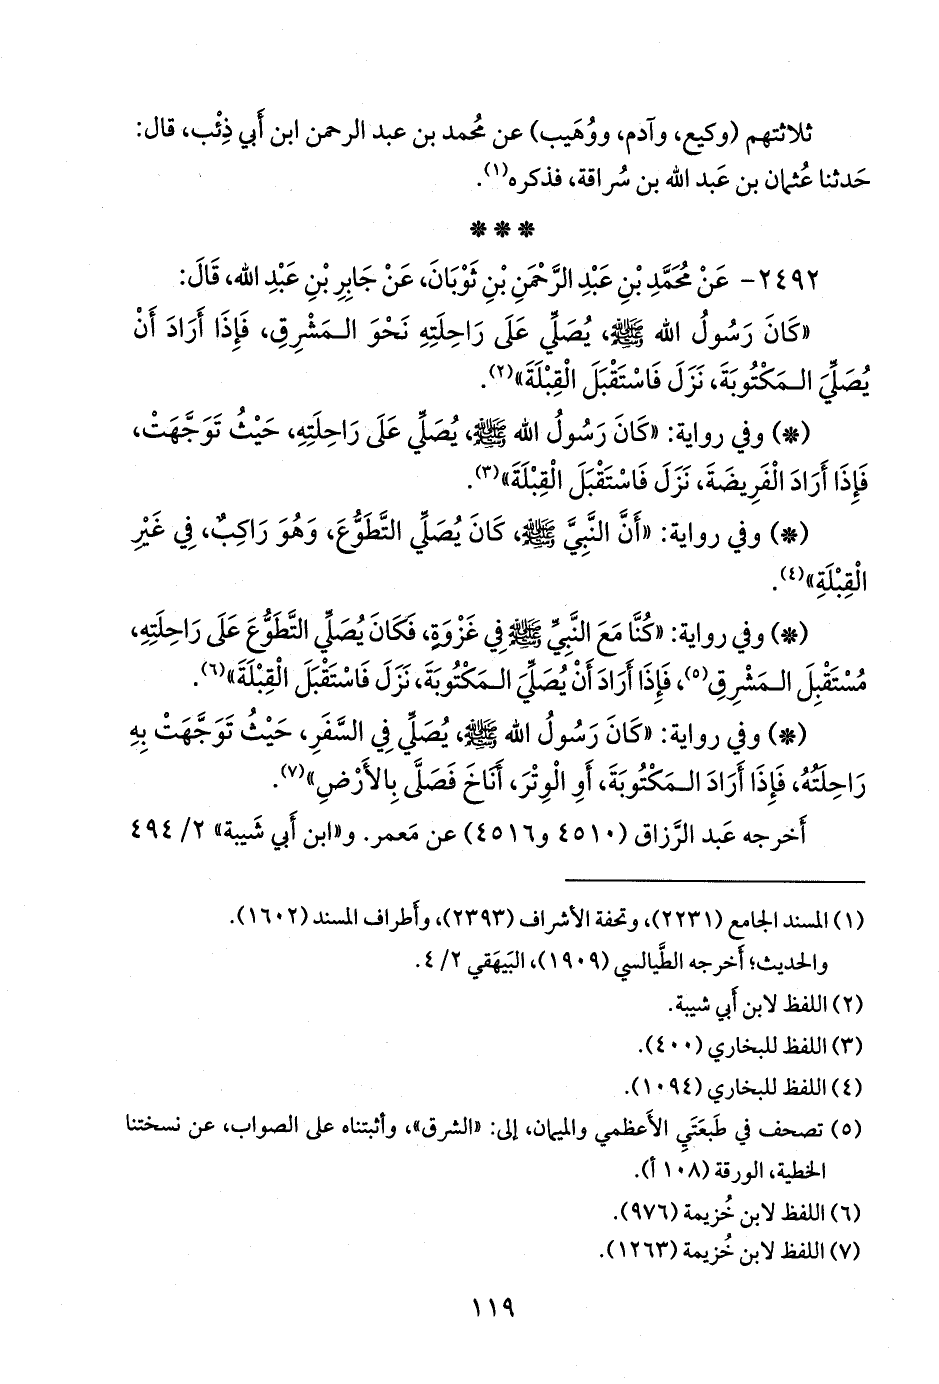 ثلاثتهم (وكيع، وآدم، ووُهَيب) عن مُحمد بن عبد الرحمن ابن أَبي ذِئْب، قال:
حَدثنا عُثمان بن عَبد الله بن سُراقة، فذكره(١).
* * *
٢٤٩٢- عَنْ مُحَمَّدِ بْنِ عَبْدِ الرَّحْمَنِ بْنِ ثَوْبَانَ، عَنْ جَابِرِ بْنِ عَبْدِ الله، قَالَ:
«كَانَ رَسُولُ الله ﷺ، يُصَلِّي عَلَى رَاحِلَتِهِ نَحْوَ الـمَشْرِقِ، فَإِذَا أَرَادَ أَنْ
يُصَلِّيَ الـمَكْتُوبَةَ، نَزَلَ فَاسْتَقْبَلَ الْقِبْلَةَ»(٢).
(*) وفي رواية: «كَانَ رَسُولُ الله ﷺ، يُصَلِّي عَلَى رَاحِلَتِهِ، حَيْثُ تَوَجَّهَتْ،
فَإِذَا أَرَادَ الْفَرِيضَةَ، نَزَلَ فَاسْتَقْبَلَ الْقِبْلَةَ»(٣).
(*) وفي رواية: «أَنَّ النَّبِيَّ ﷺ، كَانَ يُصَلِّي التَّطَوُّعَ، وَهُوَ رَاكِبٌ، فِي غَيْرِ
الْقِبْلَةِ»(٤).
(*) وفي رواية: «كُنَّا مَعَ النَّبِيِّ ﷺ فِي غَزْوَةٍ، فَكَانَ يُصَلِّي التَّطَوُّعَ عَلَى رَاحِلَتِهِ،
مُسْتَقْبِلَ الـمَشْرِقِ(٥)، فَإِذَا أَرَادَ أَنْ يُصَلِّيَ الـمَكْتُوبَةَ، نَزَلَ فَاسْتَقْبَلَ الْقِبْلَةَ»(٦).
(*) وفي رواية: «كَانَ رَسُولُ الله ﷺ، يُصَلِّي فِي السَّفَرِ، حَيْثُ تَوَجَّهَتْ بِهِ
رَاحِلَتُهُ، فَإِذَا أَرَادَ الـمَكْتُوبَةَ، أَوِ الْوِتْرَ، أَنَاخَ فَصَلَّى بِالأَرْضِ»(٧).
أَخرجه عَبد الرَّزاق (٤٥١٠ و٤٥١٦) عن مَعمر. و«ابن أَبي شَيبة» ٢/ ٤٩٤
(١) المسند الجامع (٢٢٣١)، وتحفة الأشراف (٢٣٩٣)، وأَطراف المسند (١٦٠٢).
والحديث؛ أَخرجه الطَّيالسي (١٩٠٩)، البَيهَقي ٢/ ٤.
(٢) اللفظ لابن أَبي شيبة.
(٣) اللفظ للبخاري (٤٠٠).
(٤) اللفظ للبخاري (١٠٩٤).
(٥) تصحف في طَبعَتَي الأَعظمي والميمان، إلى: «الشرق»، وأثبتناه على الصواب، عن نسختنا
الخطية، الورقة (١٠٨ أ).
(٦) اللفظ لابن خُزيمة (٩٧٦).
(٧) اللفظ لابن خُزيمة (١٢٦٣).
١١٩